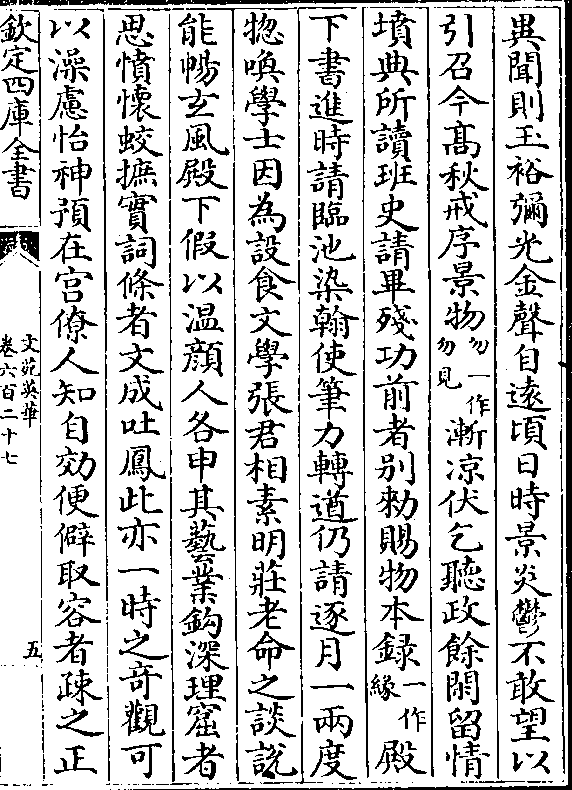 異聞則玉裕彌光金聲自遠頃日時景炎鬱不敢望以
引召今髙秋戒序景物勿一作勿見漸凉伏乞聽政餘閑留情
墳典所讀班史請畢殘功前者别勅賜物本録一作緣殿
下書進時請臨池染翰使筆力轉遒仍請逐月一兩度
惣喚學士因為設食文學張君相素明莊老命之談說
能暢玄風殿下假以温顔人各申其藝業鈎深理窟者
思憤懷蛟摭實詞條者文成吐鳳此亦一時之竒觀可
以澡慮怡神預在宫僚人知自効便僻取容者疎之正
欽定四庫全書
文苑英華
卷六百二十七
五